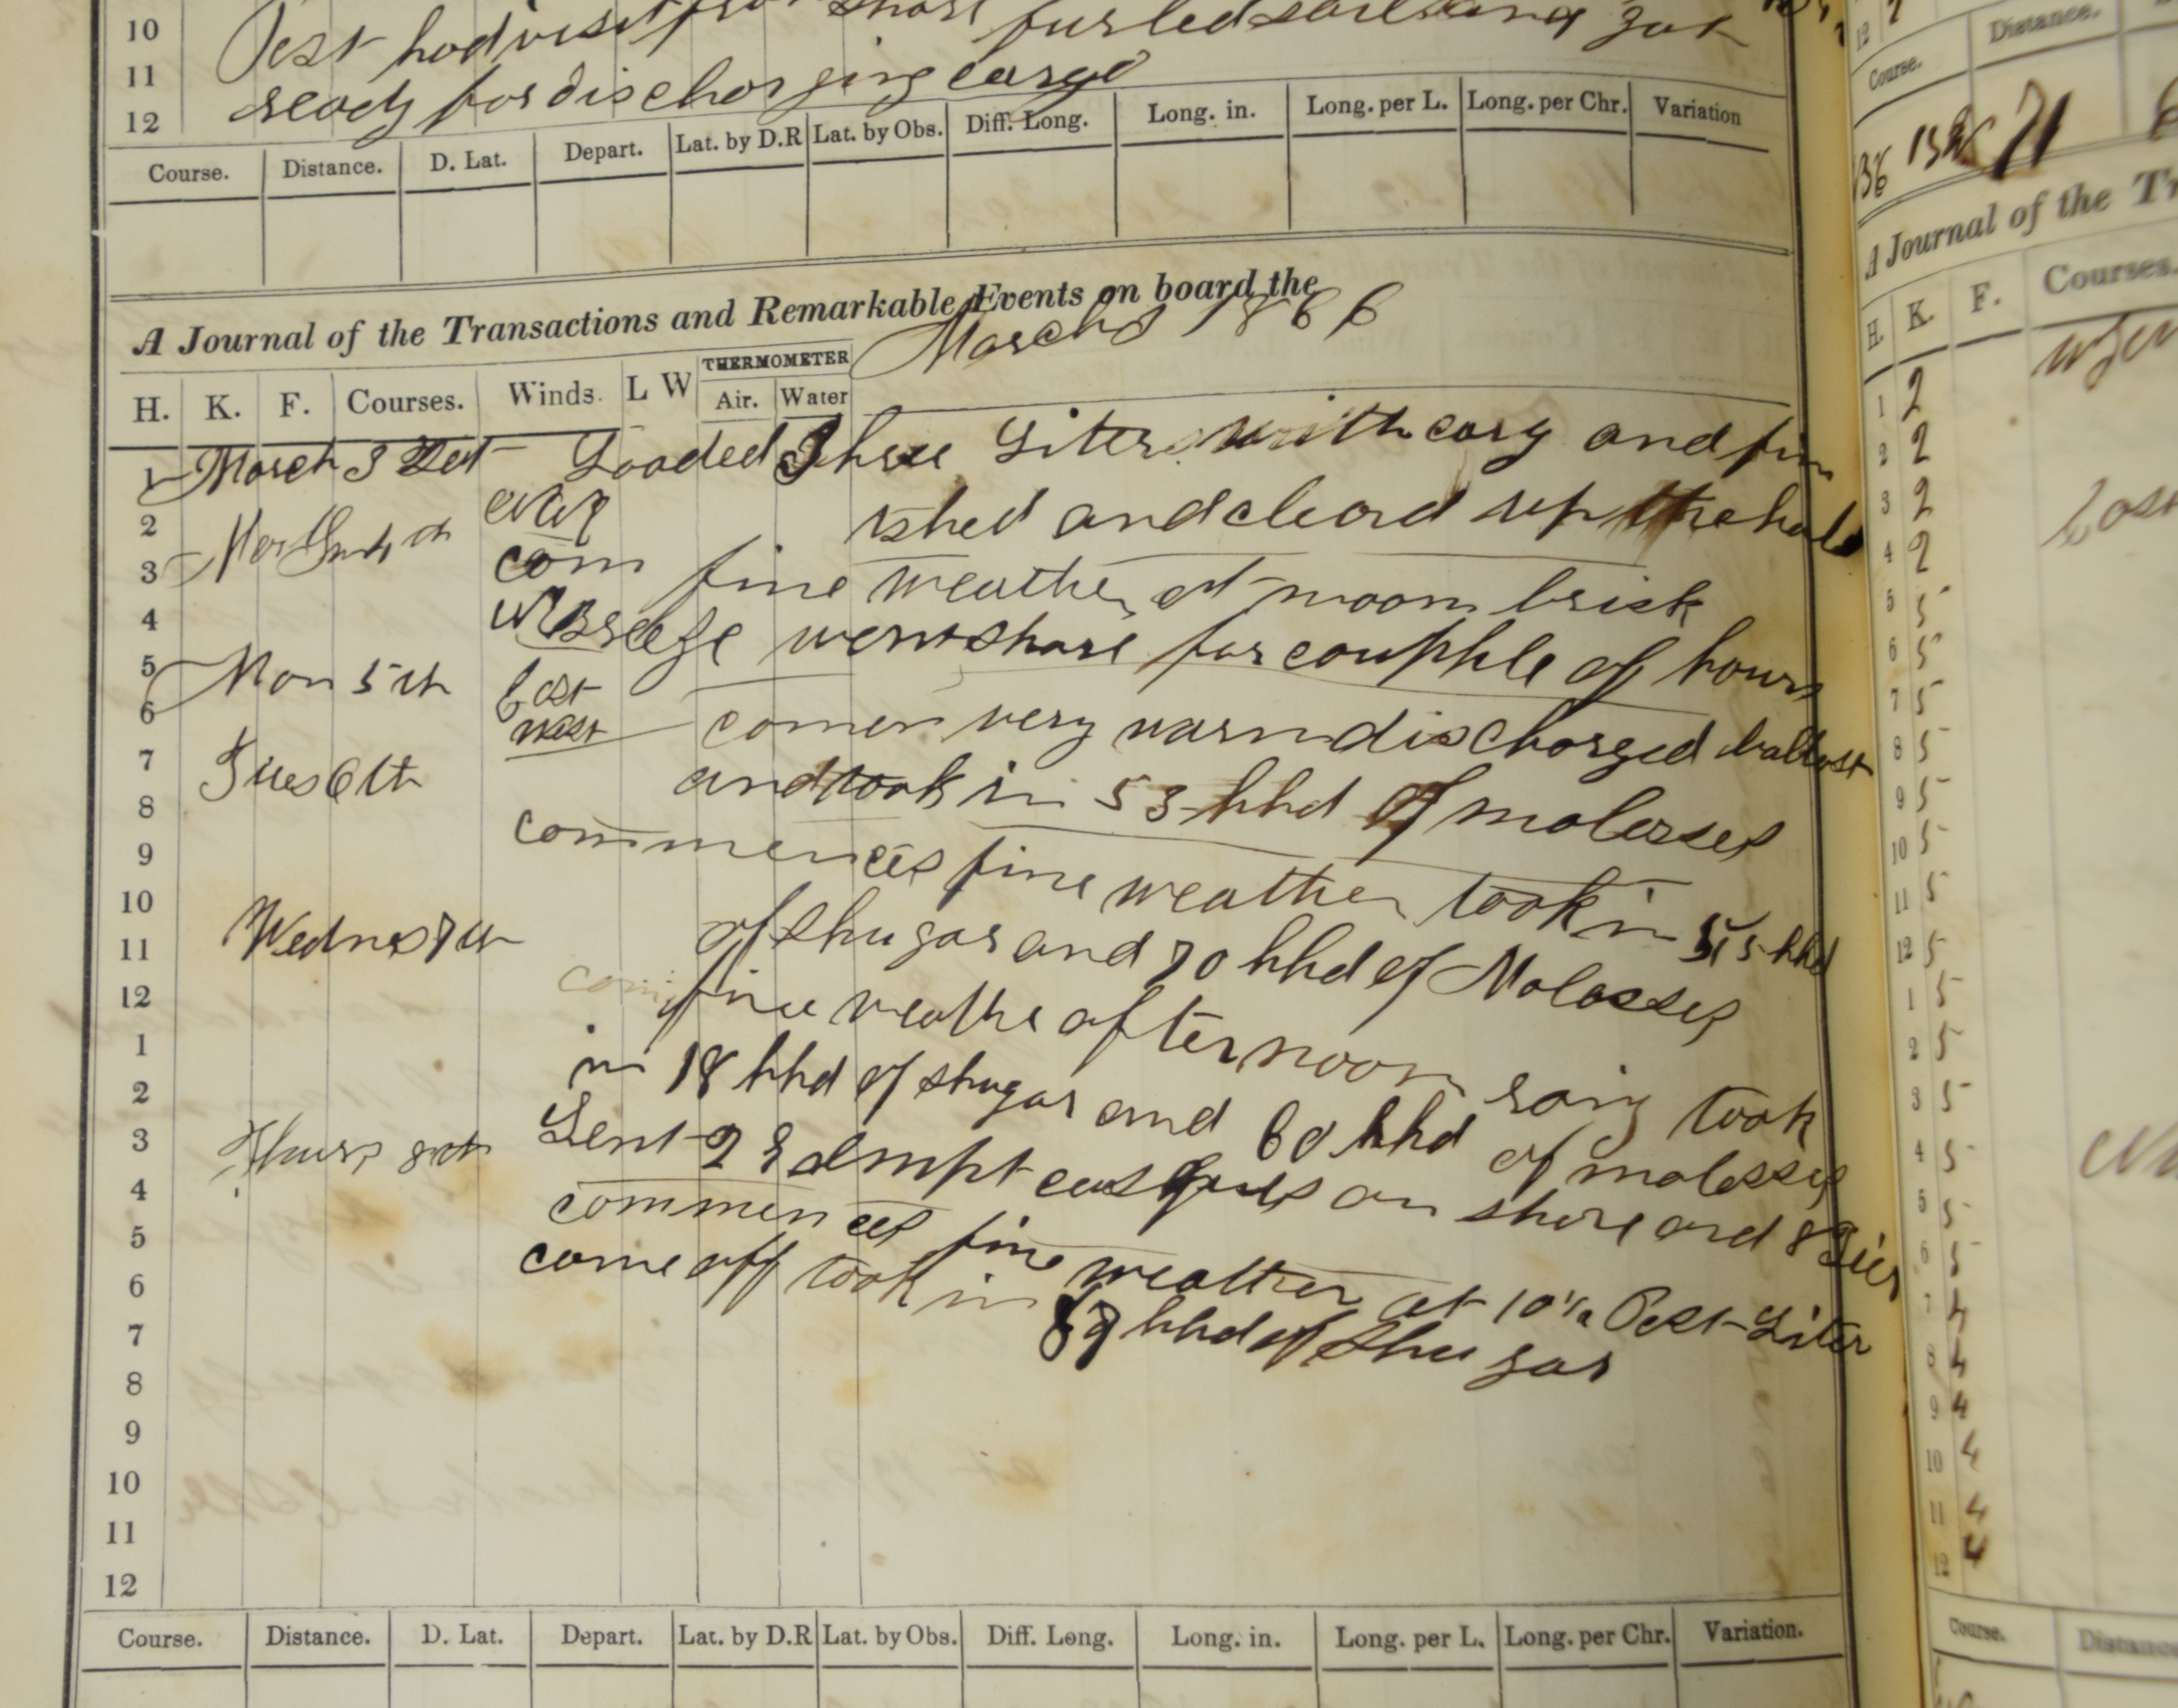 10 Pest had visit from shore furled sails and got
11 ready for discharging cargo
12
Course. Distance. D. Lat. Depart. Lat. by D.R Lat. by Obs. Diff. Long. Long. in. Long. per L. Long. per Chr. Variation
A Journal of the Transactions and Remarkable Events on board the
March 1866
H. K. F. Courses. Winds. L W THERMOMETER Air. Water
1 March 3 Loaded Three Liters with carg and fin
2 ished and cleard up the hold
3 com fine weather at noon brisk
4 Breeze went shore for coupple of hours
5 Mon 5th East
6 west comen very warn discharged ballast
7 Tues 6th and took in 53 hhd of molasses
8
9 commences fine weather took in 55 hhd
10 of shugar and 70 hhd of Molasses
11 Wednes 7th
12 com fine weathe afternoon rainy took
1 in 18 hhd of shugar and 60 hhd of molasses
2
3 Thurs 8th Sent empt on shore and 8
4 commences fine weather at 10½ Pest Liter
5 come off took in 87 hhd of shugar
6
7
8
9
10
11
12
Course. Distance. D. Lat. Depart. Lat. by D.R Lat. by Obs. Diff. Long. Long. in. Long. per L. Long. per Chr. Variation.
12
Course. Distance.
71
A Journal of the Tr
H. K. F. Courses.
1 2
2 2
3 2
4 2
5 5
6 5
7 5
8 5
9 5
10 5
11 5
12 5
1 5
2 5
3 5
4 5
5 5
6 5
7 4
8 4
9 4
10 4
11 4
12 4
Course. Distance